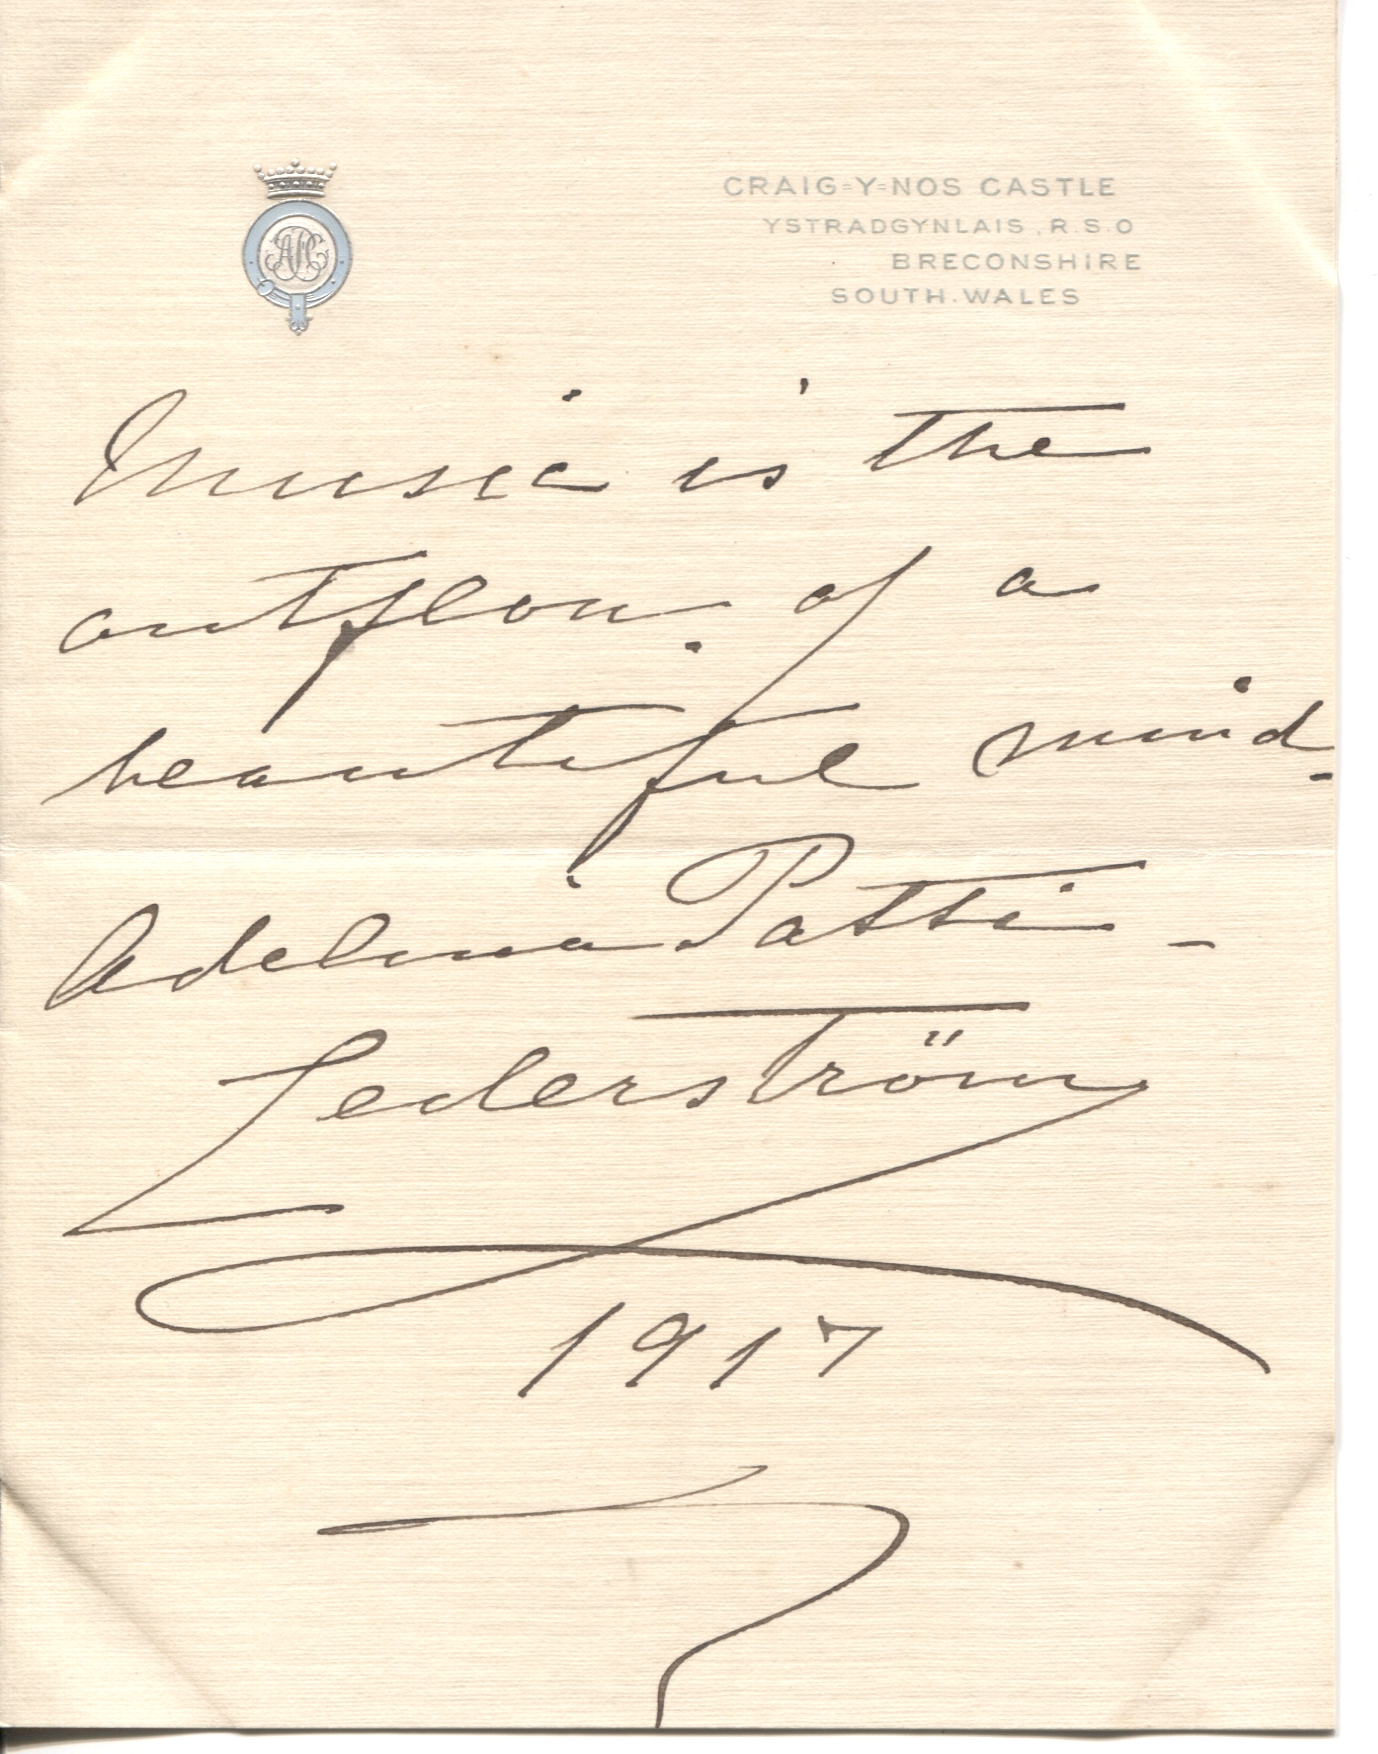 CRAIG=Y=NOS CASTLE
YSTRADGYNLAIS, R.S.O
BRECONSHIRE
SOUTH.WALES
Music is the
outflow of a
beautiful mind.
Adelina Patti -
Cederström
1917